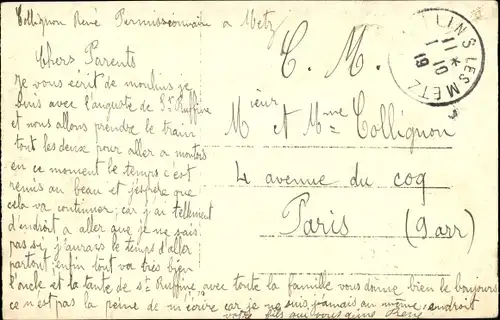 Collignon René Permissionnaire a Metz
Chers Parents
Je vous écrit de moulins je
suis avec l'auguste de St Ruffine
et nous allons prendre le train
tout les deux pour aller a
en ce moment le temps c'est
remis au beau et j'éspère que
cela va continuer; car j'ai tellement
d'indroit a aller que je ne sais
pas si j'aurais le temps d'aller
partout; enfin tout va très bien
l'oncle et la tante de St Ruffine, avec toute la famille vous donne bien le bonjours
ce n'est pas la peine de m'écrire car je ne suis jamais au même endroit
votre fils qui vous aime René
C. M.
Mieur et Mme Collignon
4 avenue du coq
Paris (9arr)
LINS LES METZ *
11
1 10
19